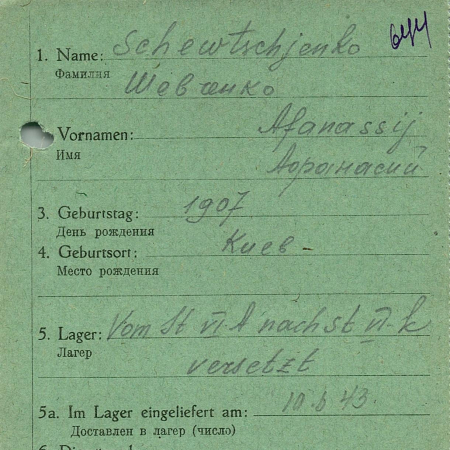 644
1. Name: Schewtschjenko
Фамилия Шевченко
Vornamen: Afanassij
Имя Афранасий
3. Geburtstag: 1907
День рождения
4. Geburtsort: Киев -
Место рождения
5. Lager: Vom St VI-A nach St VI-k
Лагер versetzt
5a. Im Lager eingeliefert am: 10.6.43.
Доставлен в лагер (число)